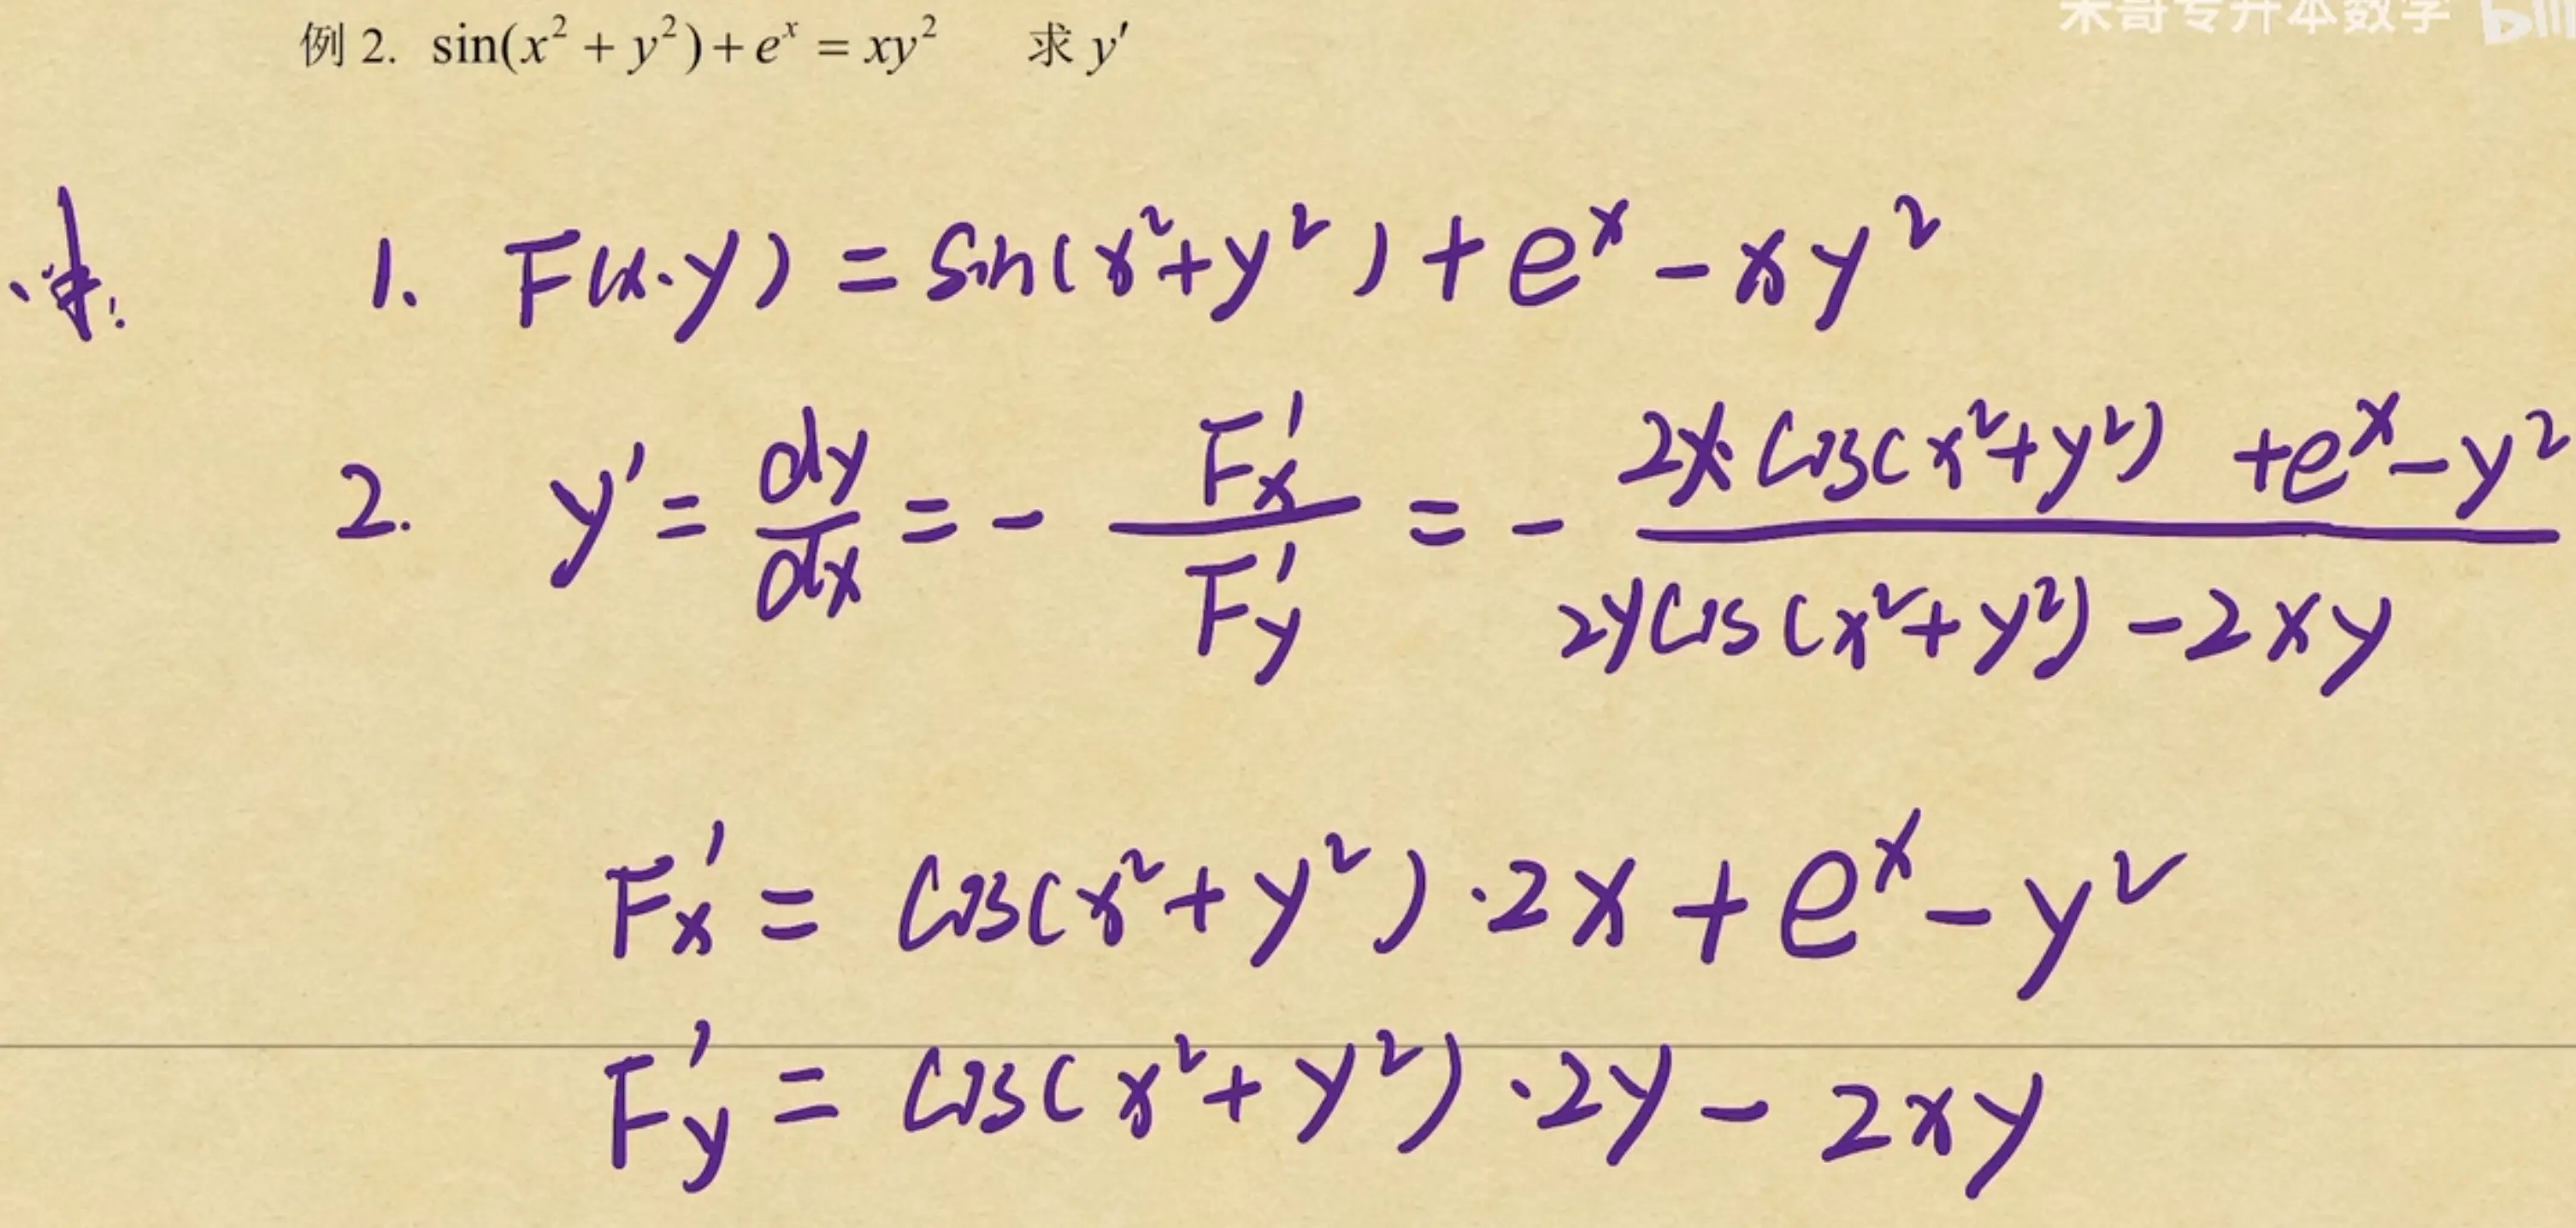 例 2. sin(x² + y²) + eˣ = xy² 求 y′
1. F(x·y) = sin(x²+y²) + eˣ - xy²
2. y′ = dy/dx = - F′x/F′y = - (2x·cos(x²+y²) + eˣ - y²)/(2ycos(x²+y²) - 2xy)
F′x = cos(x²+y²)·2x + eˣ - y²
F′y = cos(x²+y²)·2y - 2xy